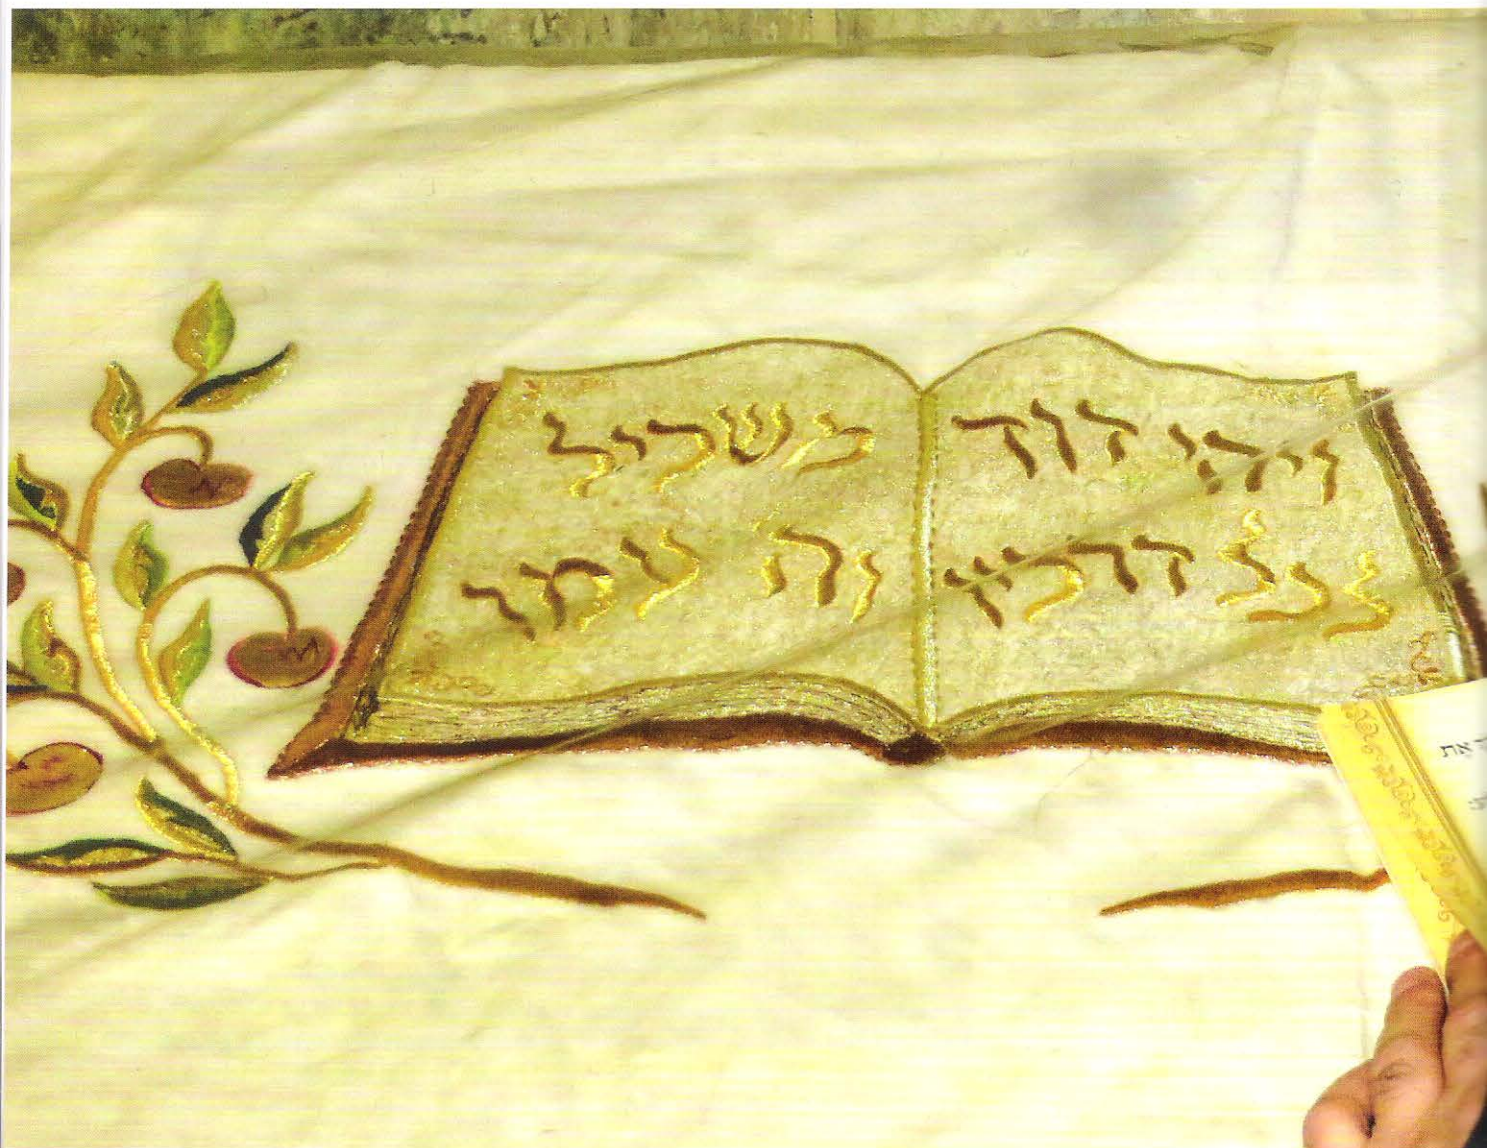 ויהי דוד
לכל דרכיו
משכיל
וה עמו
את